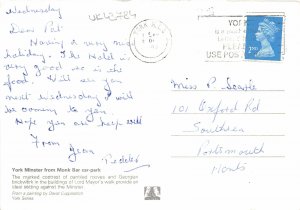 Wednesday
UKW2784
Dear Pat
Having a very nice
holiday. The Hotel is
very good so is the
food. Will see you
next Wednesday I will
be coming to you
Hope you are keep well
From
Jean
Miss P. Searle
101 Oxford Rd
Southsea
Portsmouth
Hants
York Minster from Monk Bar car-park
The marked contrast of painted hooves and Georgian
brickwork in the buildings of Lord Mayor's walk provide an
ideal setting against the Minster.
From a painting by David Cuppleditch
York Series
YORK
YO
USE POS
2ND